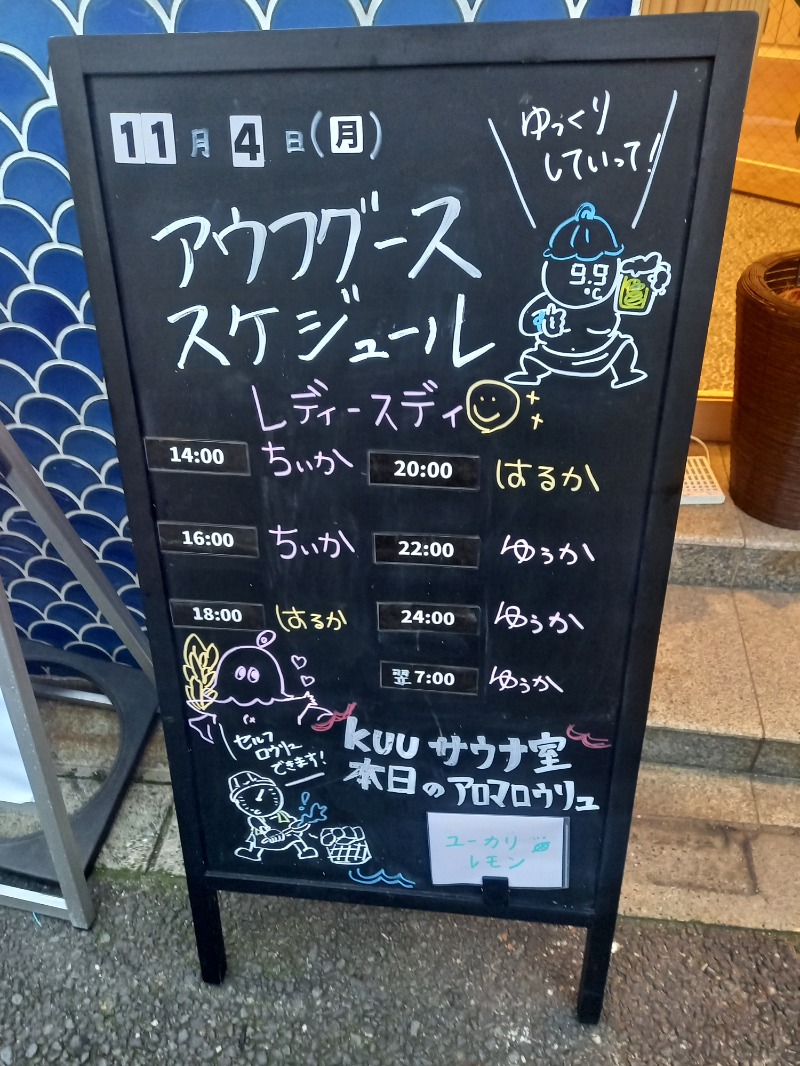 11月4日(月)
ゆっくり
していって!
アウフグース
スケジュール
9.9
℃
レディースディ
14:00 ちいか
16:00 ちいか
18:00 はるか
20:00 はるか
22:00 ゆうか
24:00 ゆうか
翌7:00 ゆうか
セルフ
ロウリュ
できます!
KUU サウナ室
本日のアロマロウリュ
ユーカリ
レモン